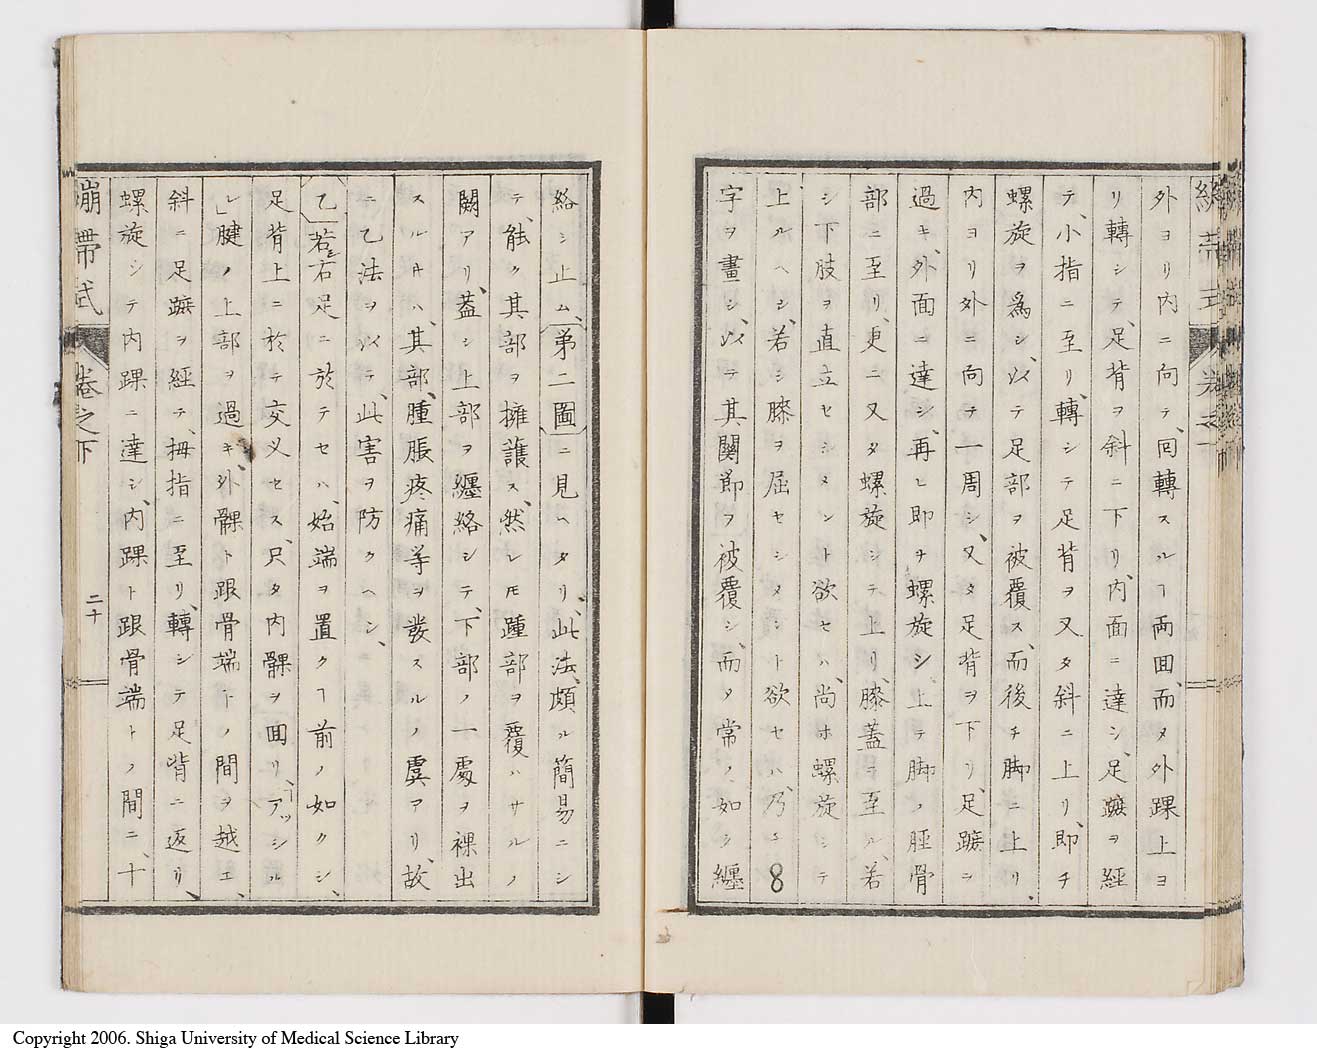 外ヨリ内ニ向テ、回轉スルヿ両囬、而メ外踝上ヨ
リ轉シテ、足背ヲ斜ニ下リ、内面ニ達シ、足蹠ヲ經
テ、小指ニ至リ、轉シテ足背ヲ又タ斜ニ上リ、即チ
螺旋ヲ爲シ、以テ足部ヲ被覆ス、而後チ脚ニ上リ、
内ヨリ外ニ向テ一周シ、又タ足背ヲ下リ、足蹠ニ
過キ、外面ニ達シ、再ヒ即ヲ螺旋シ上テ脚ノ脛骨
部ニ至リ、更ニ又タ螺旋シテ上リ、膝蓋ニ至ル、若
シ下肢ヲ直立セシメント欲セハ、尚ホ螺旋シテ
上ルヘシ、若シ膝ヲ屈セシメント欲セハ、乃チ8
字ヲ畫シ、以テ其関節ヲ被覆シ、而タ常ノ如ク纏
絡シ止ム、第二圖ニ見ヘタリ、此法、頗ル簡易ニシ
テ、能ク其部ヲ擁護ス、然レ𪜈踵部ヲ覆ハサルノ
闕アリ、蓋シ上部ヲ纏絡シテ、下部ノ一處ヲ裸出
スル𪜈ハ、其部、腫脹疼痛等ヲ發スルノ虞アリ、故
ニ乙法ヲ以テ、此害ヲ防クヘシ、
乙若シ右足ニ於テセハ、始端ヲ置クヿ前ノ如クシ、
足背上ニ於テ交叉セス、只タ内髁ヲ囬リ、「アッシル
レ」腱ノ上部ヲ過キ、外髁ト跟骨端トノ間ヲ越エ、
斜ニ足蹠ヲ経テ、拇指ニ至リ、轉シテ足背ニ返リ、
螺旋シテ内踝ニ達シ、内踝ト跟骨端トノ間ニ、十
繃帯式
卷之下
二十
Copyright 2006. Shiga University of Medical Science Library